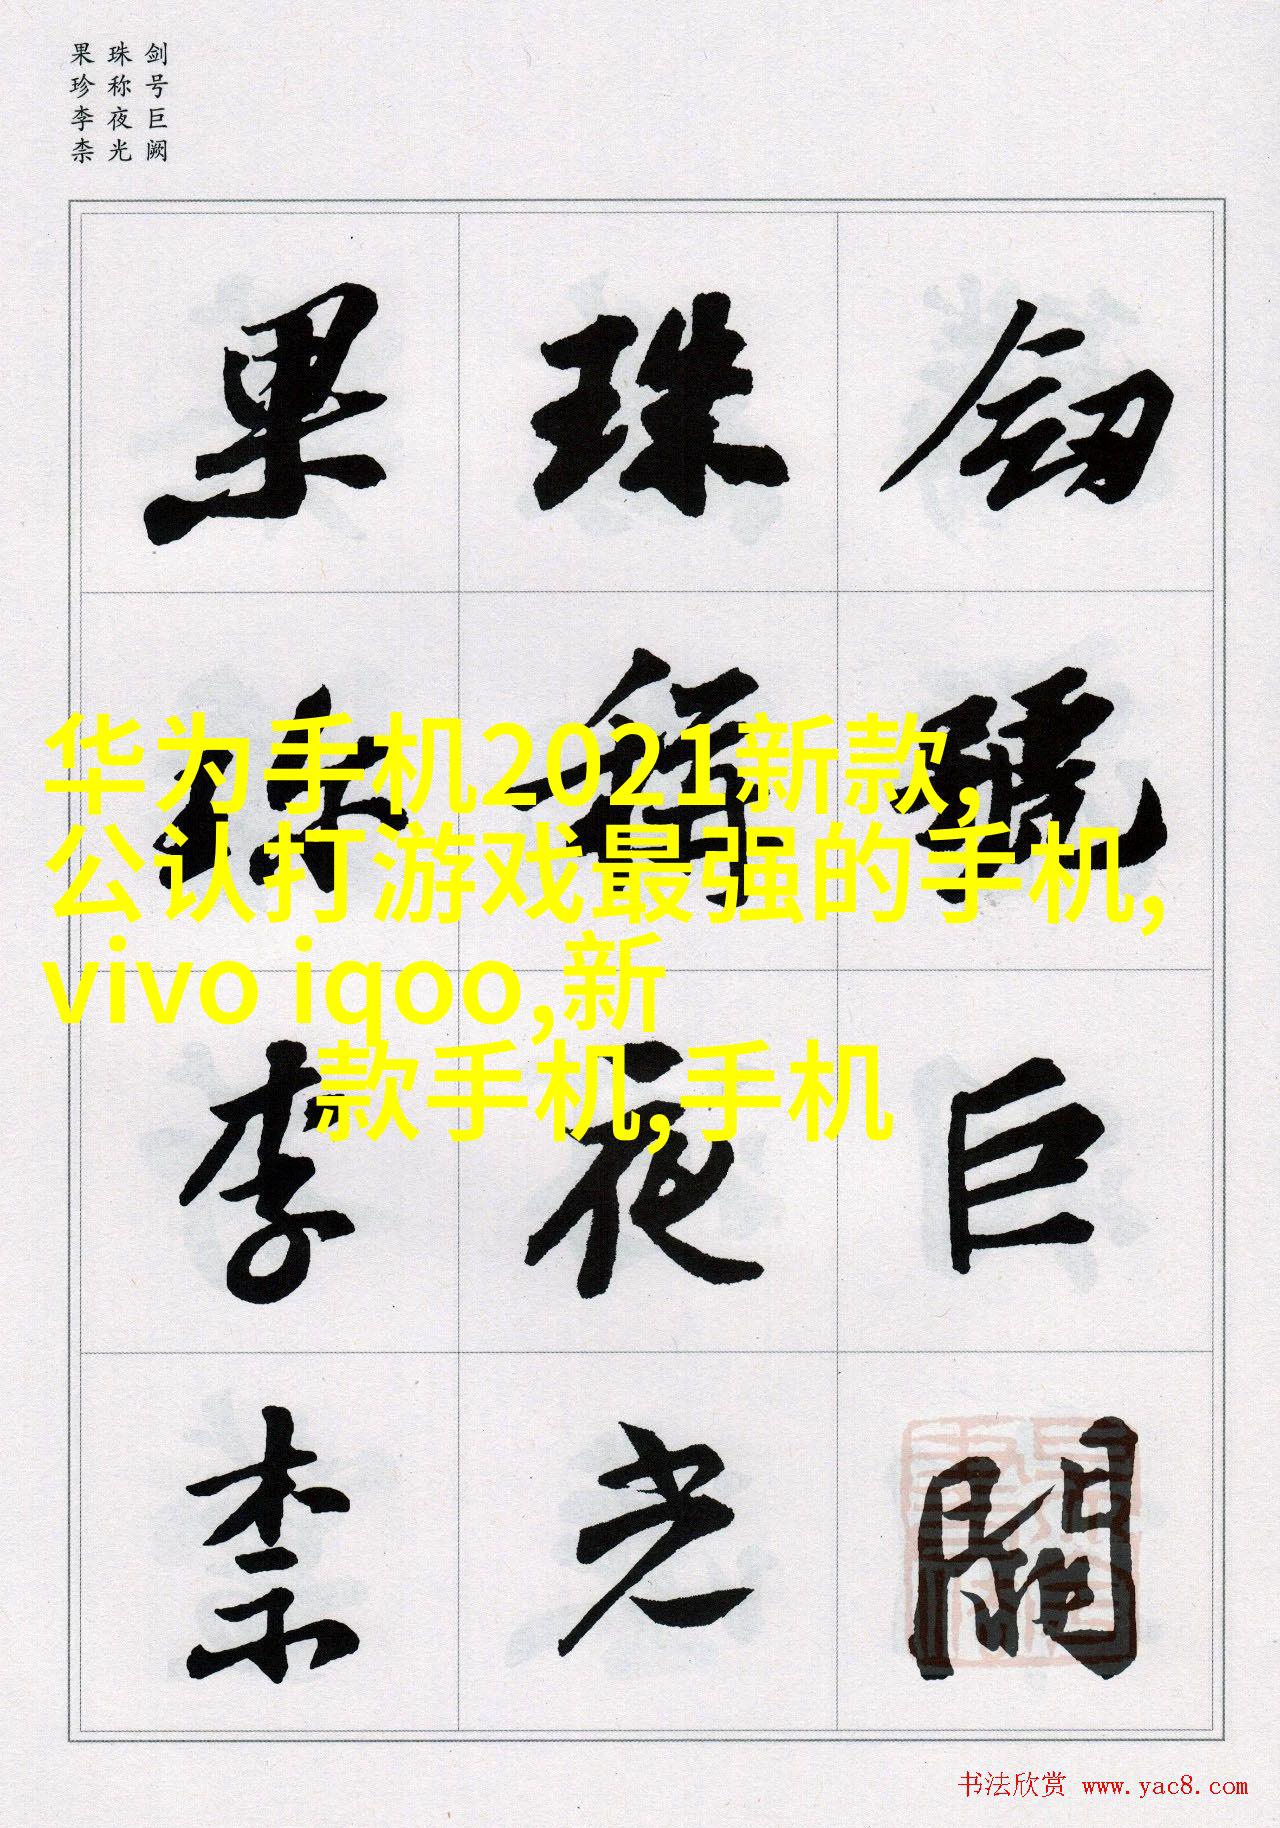 剑号巨阙
珠称夜光
果珍李柰
劒號巨闕
珠稱夜光
果珍李柰
华为手机2021新款,
公认打游戏最强的手机,
vivo iqoo,新
款手机,手机
书法欣赏 www.yac8.com